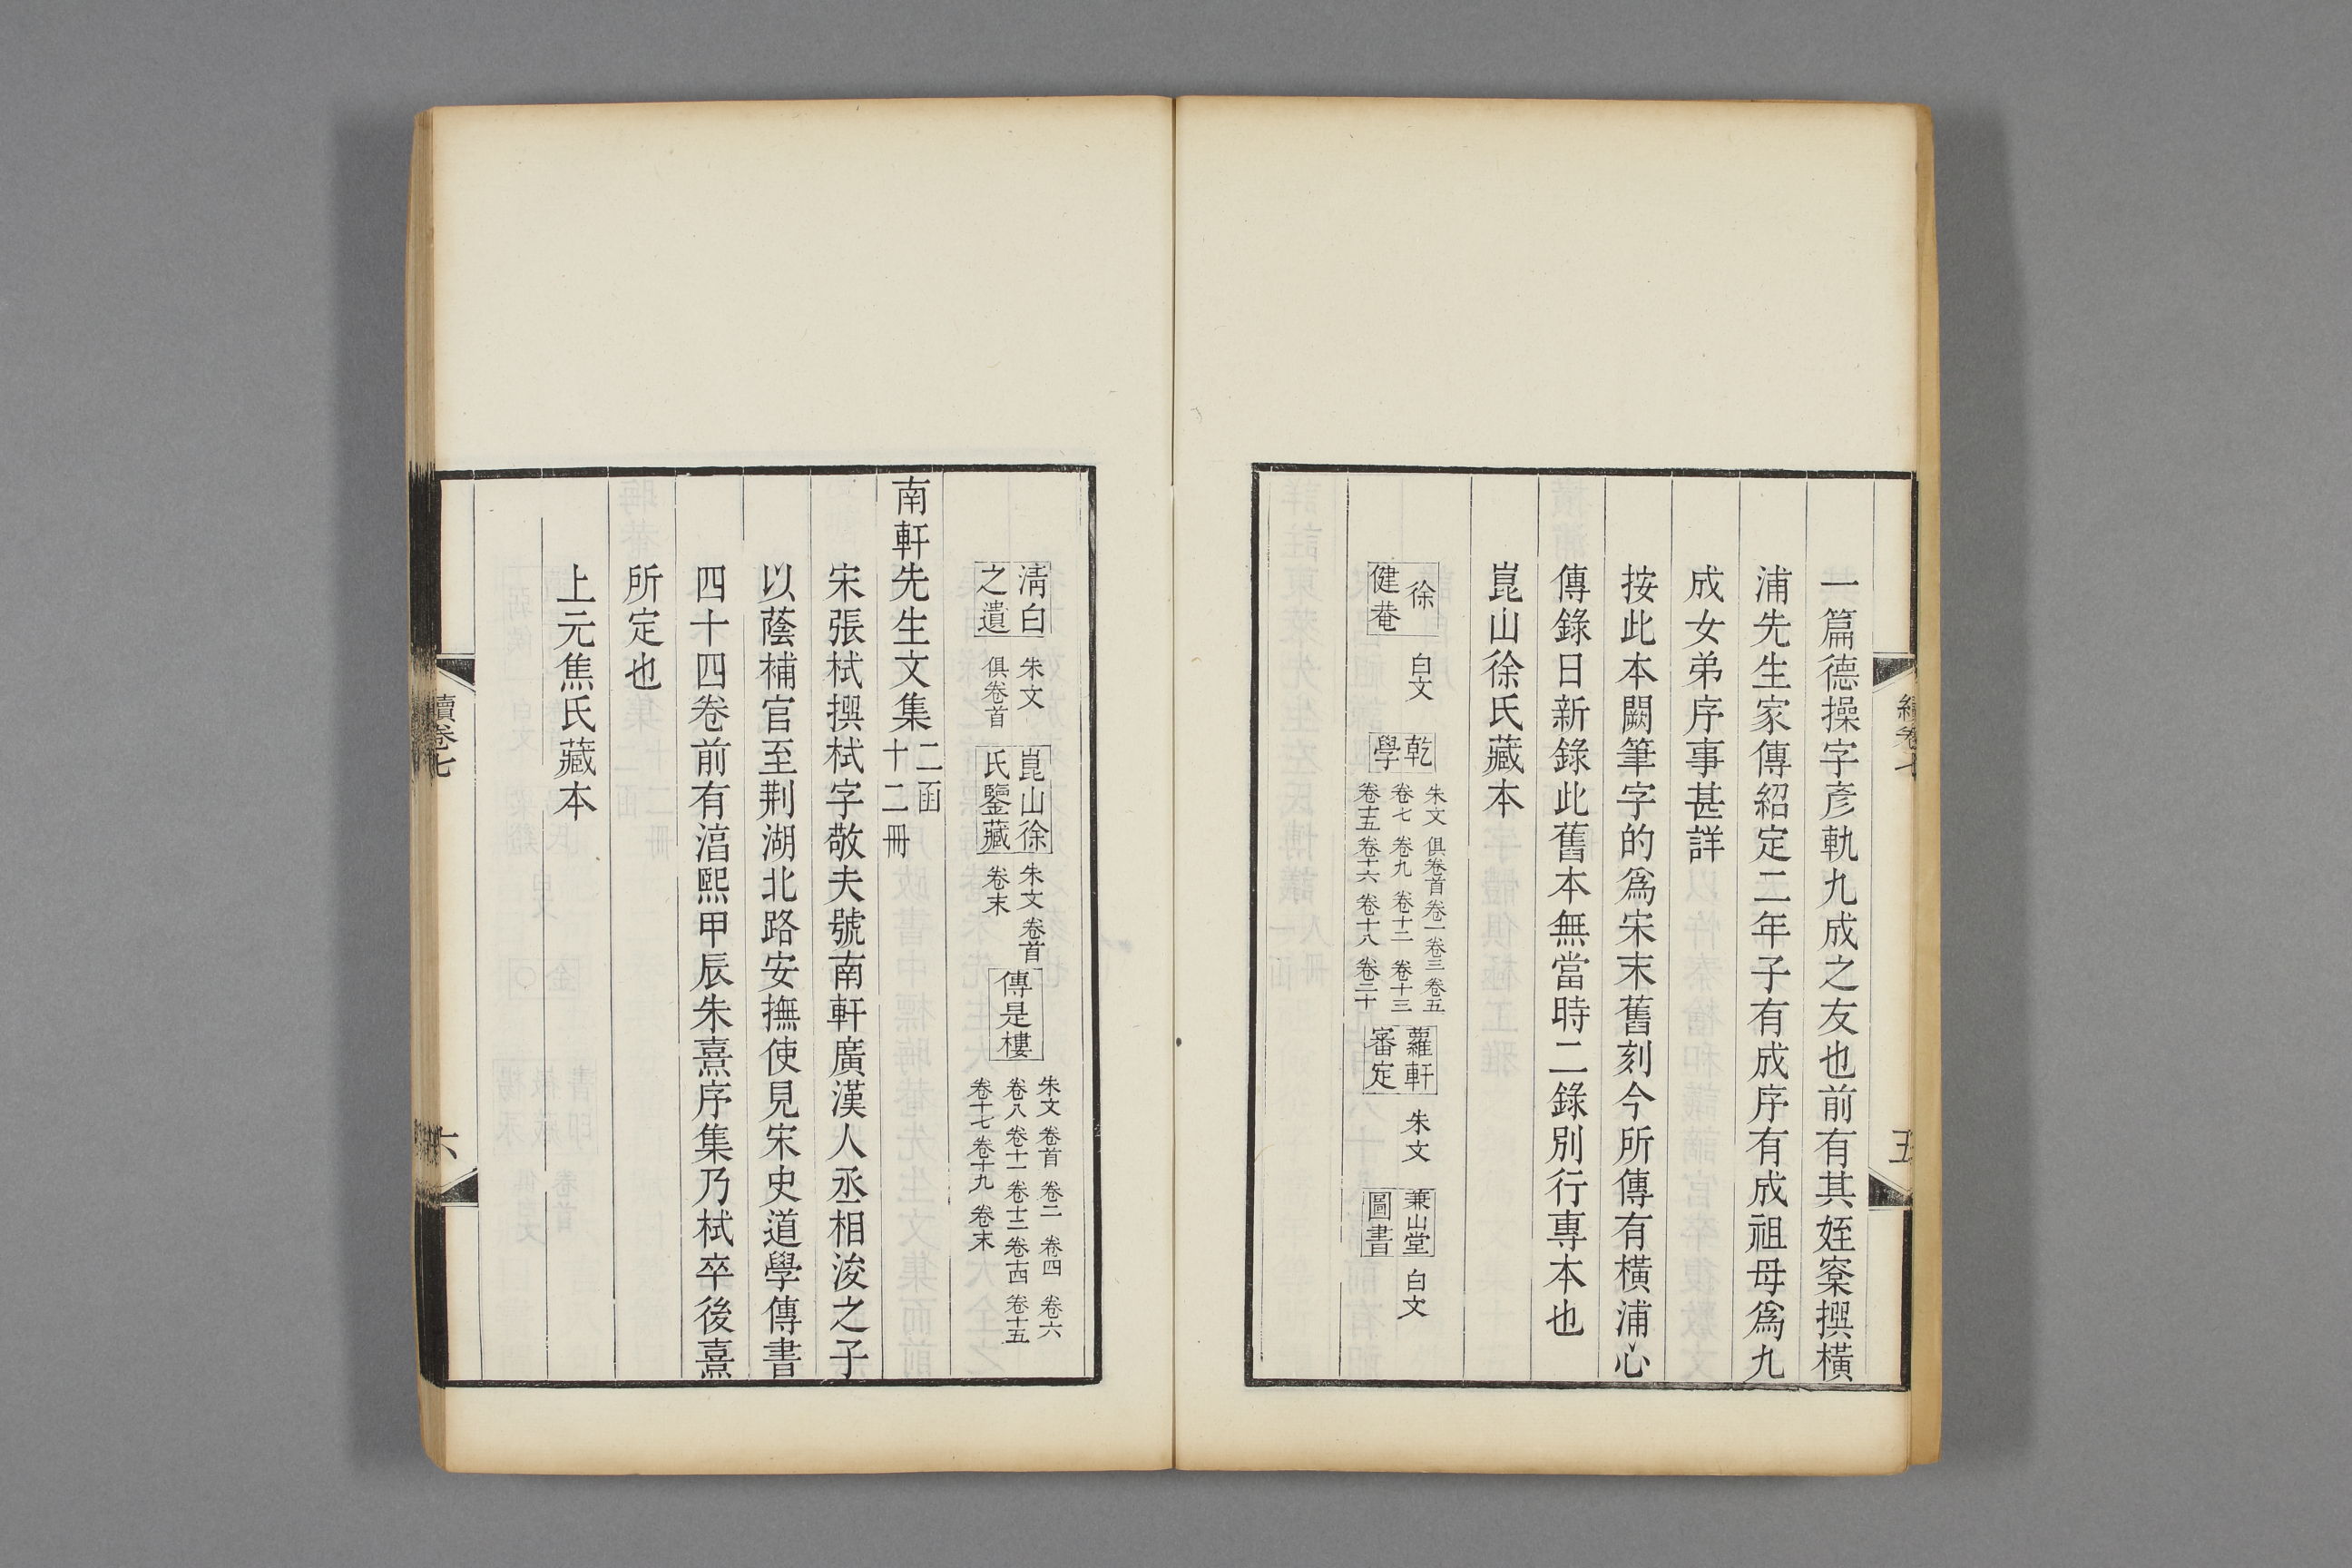 一篇德操字彥軌九成之友也前有其姪窠撰橫
浦先生家傳紹定二年子有成序有成祖母爲九
成女弟序事甚詳
按此本闕筆字的爲宋末舊刻今所傳有橫浦心
傳錄日新錄此舊本無當時二錄別行專本也
崑山徐氏藏本
徐健菴
白文
乾學
朱文 俱卷首 卷一 卷三 卷五
卷七 卷九 卷十二 卷十三
卷十五 卷十六 卷十八 卷二十
蘿軒審定
朱文
兼山堂圖書
白文
五
清白之遺
朱文
俱卷首
崑山徐氏鑒藏
朱文 卷首
卷末
傳是樓
朱文 卷首 卷二 卷四 卷六
卷八 卷十一 卷十二 卷十四 卷十五
卷十七 卷十九 卷末
南軒先生文集 二函 十二冊
宋張栻撰栻字敬夫號南軒廣漢人丞相浚之子
以蔭補官至荆湖北路安撫使見宋史道學傳書
四十四卷前有湻熙甲辰朱熹序集乃栻卒後熹
所定也
上元焦氏藏本
續卷七
六